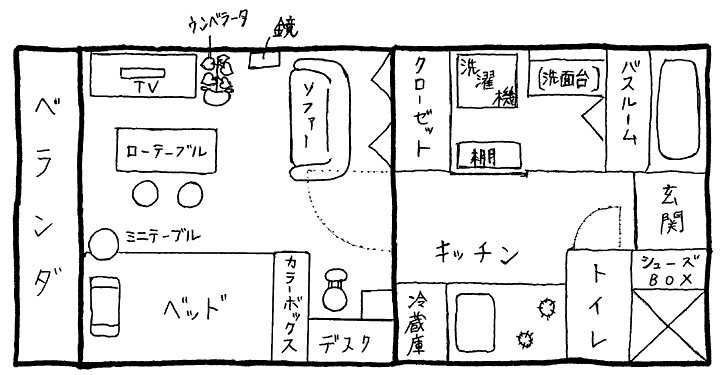 ウンベラータ
鏡
ベランダ
TV
ソファー
クローゼット
洗濯機
(洗面台)
バスルーム
ローテーブル
棚
玄関
ミニテーブル
キッチン
ベッド
カラーボックス
デスク
冷蔵庫
トイレ
シューズ
BOX